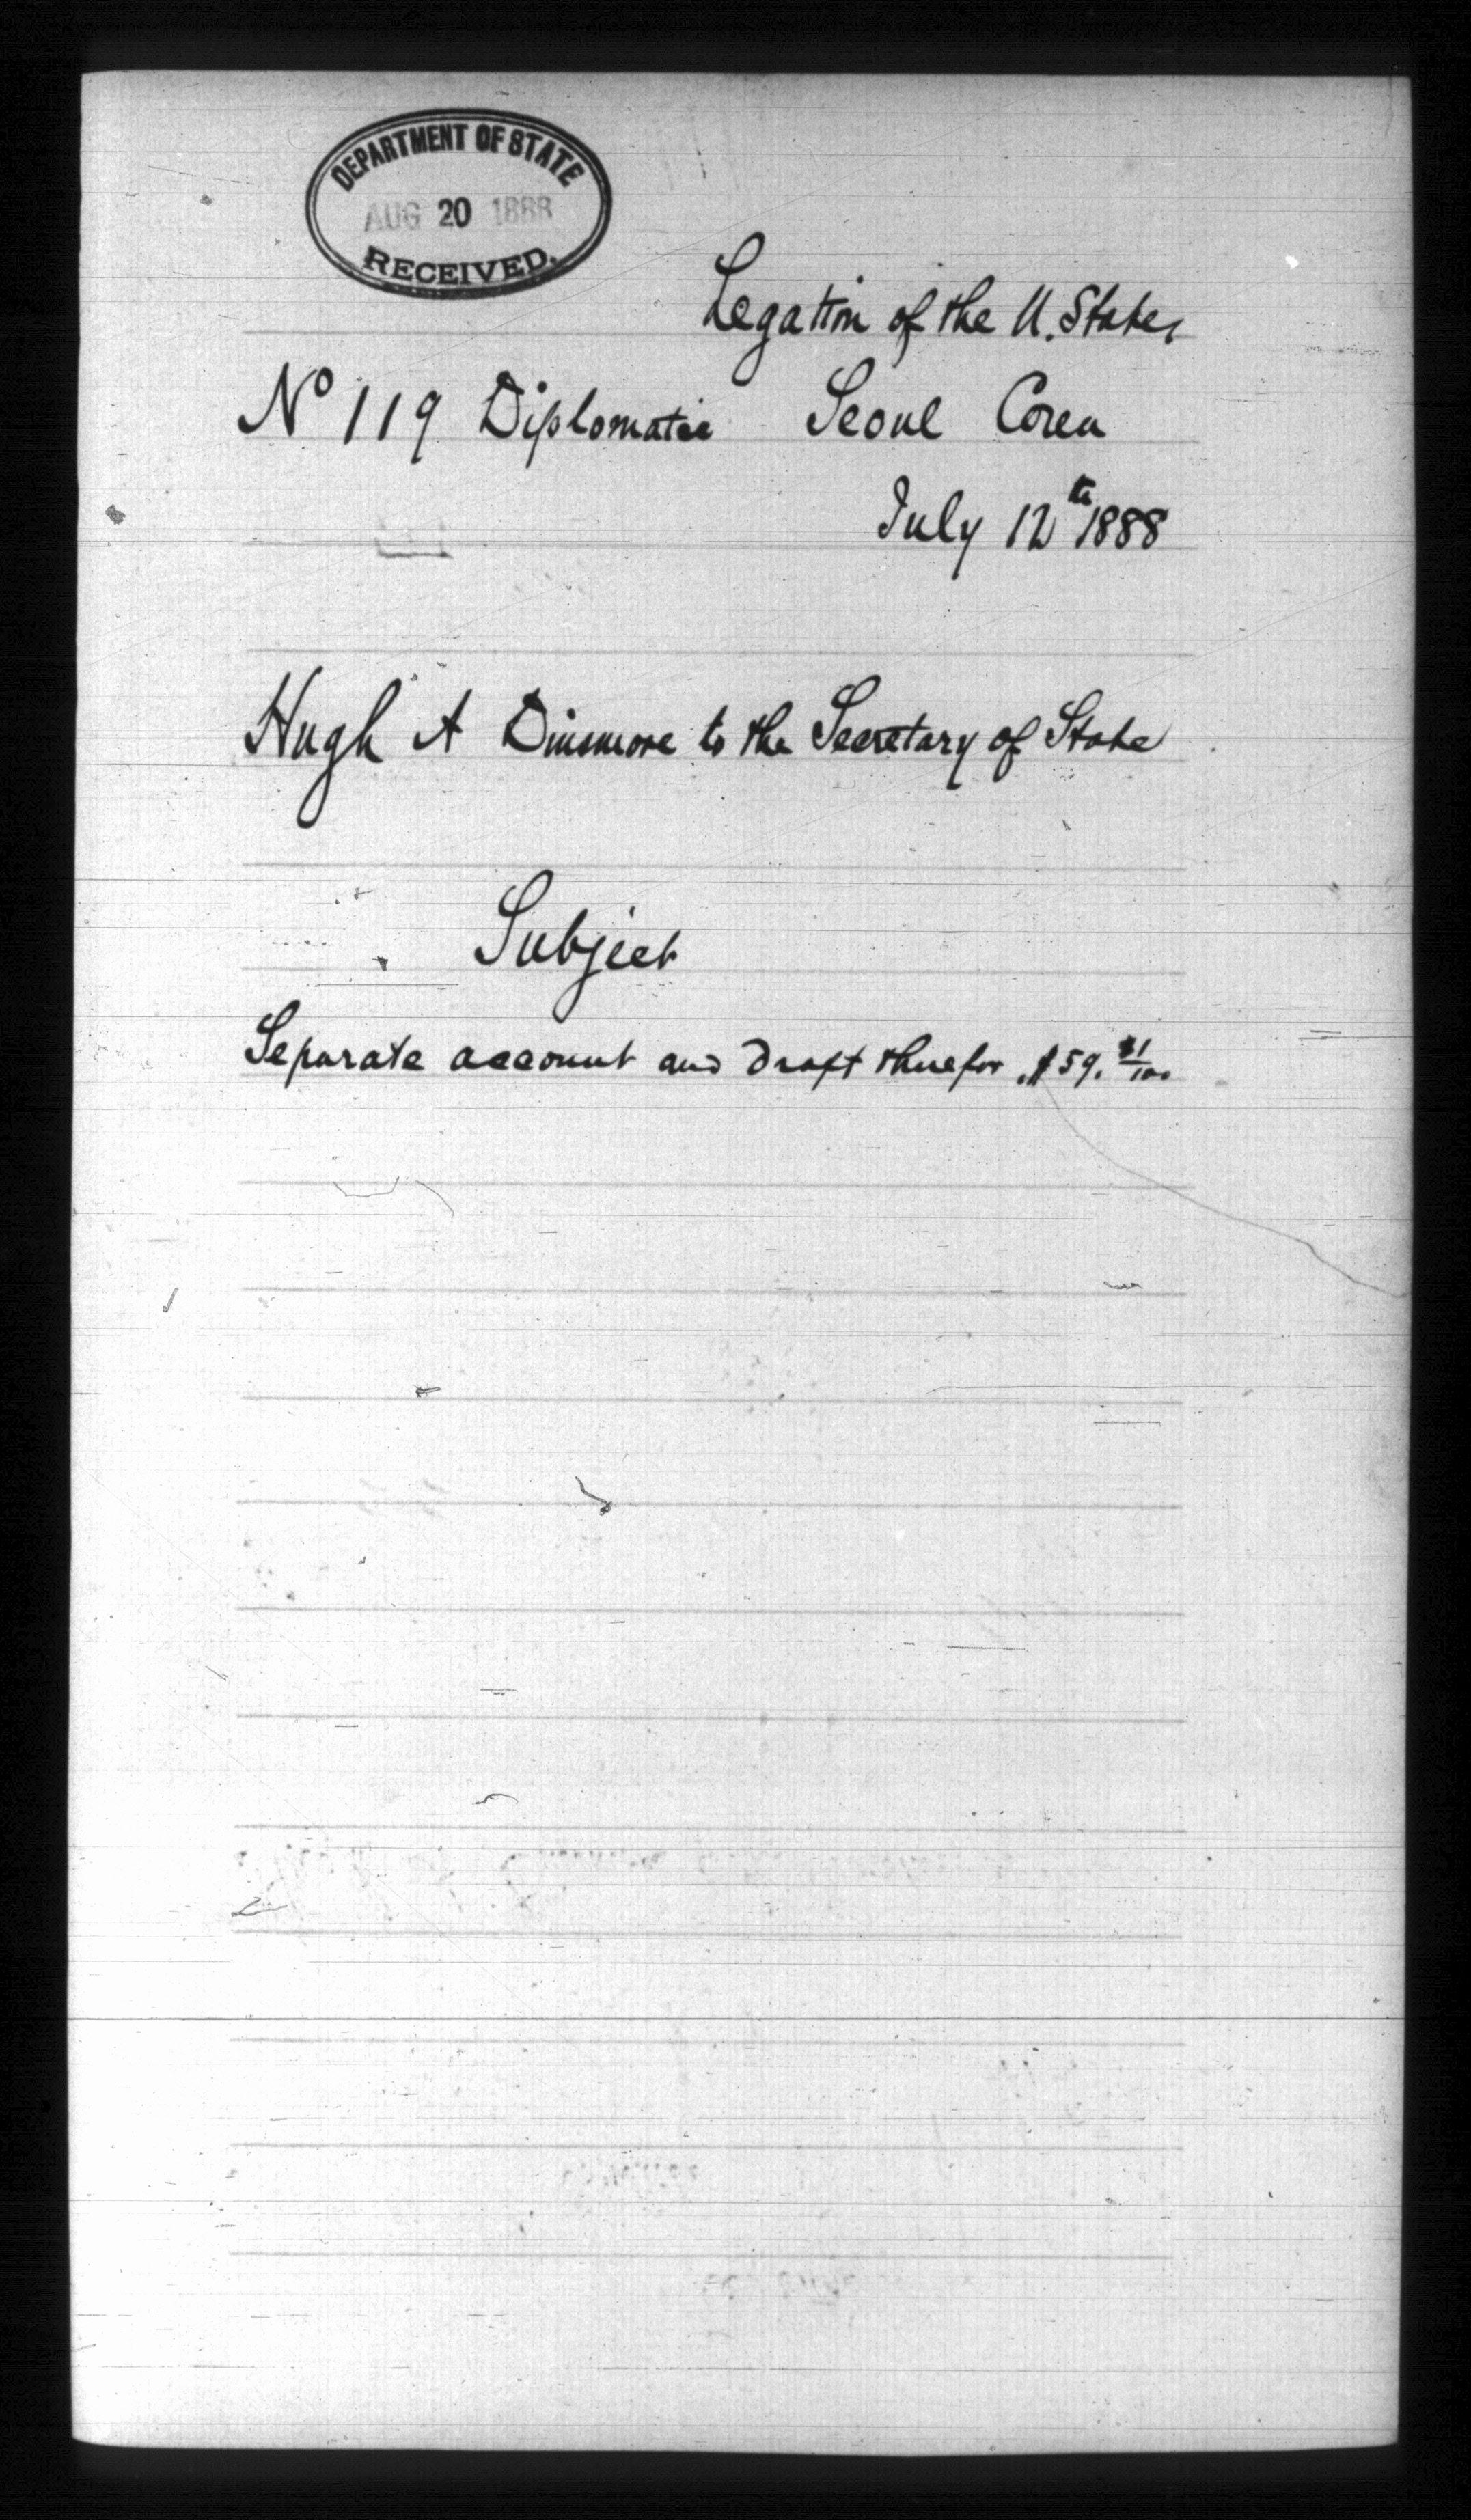 DEPARTMENT OF STATE
AUG 20 1888
RECEIVED.
Legation of the U. States
Nº 119 Diplomatic Seoul Corea
July 12th 1888
Hugh A Dinsmore to the Secretary of State
Subject
Separate account and Draft therefor $59.